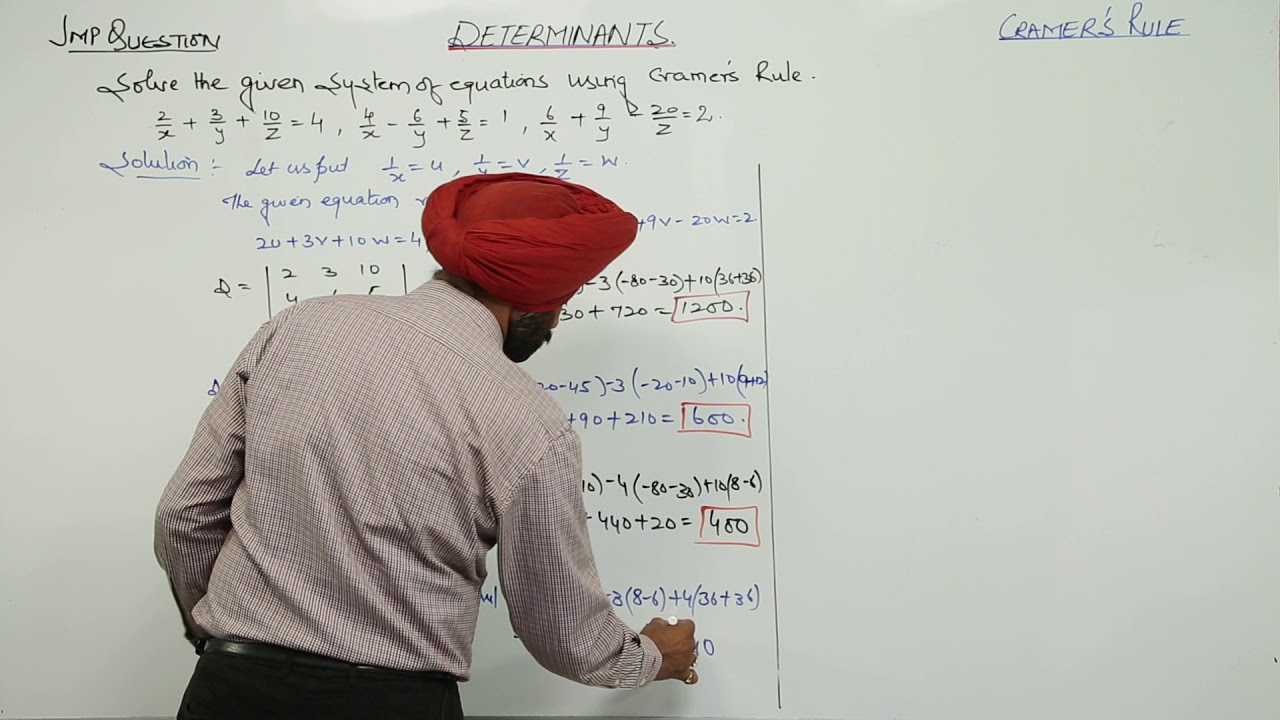 IMP QUESTION
DETERMINANTS.
CRAMER'S RULE
Solve the given system of equations using Cramer's Rule.
2/x + 3/y + 10/z = 4, 4/x - 6/y + 5/z = 1, 6/x + 9/y - 20/z = 2.
Solution :- Let us put 1/x = u, 1/y = v, 1/z = w.
The given equation
2u + 3v + 10w = 4, +9v - 20w = 2
D = | 2 3 10 |
-3(-80-30)+10(36+36)
30 + 720 = 1200.
20-45)-3(-20-10)+10(9+12)
+90+210 = 600.
10)-4(-80-30)+10(8-6)
440+20 = 400
-3(8-6)+4(36+36)